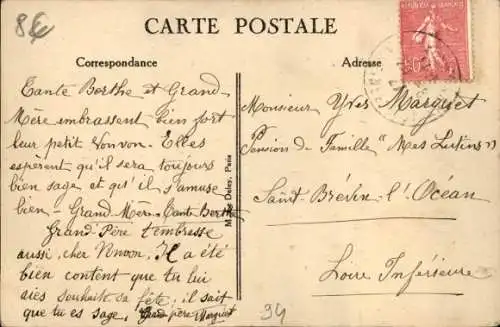 8€
CARTE POSTALE
Correspondance
Adresse
Tante Berthe et Grand
Mère embrassent bien fort
leur petit Vonvon. Elles
espèrent qu'il sera toujours
bien sage et qu'il s'amuse
bien - Grand Mère - Tante Berthe
Grand-Père t'embrasse
aussi, cher Vonvon. Il a été
bien content que tu lui
aies souhaité sa fête; il sait
que tu es sage. Grand père Marquet
Paris
Monsieur Yves Marquet
Pension de Famille "Mes Lutins"
Saint-Brévin-l'Océan
Loire Inférieure
94